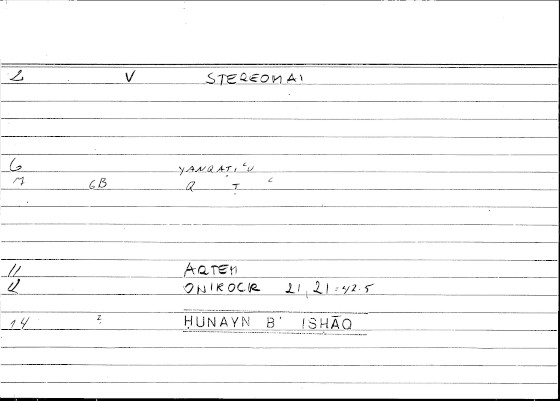 2 V STEREOMAI
6 YANQAṬIʿU
7 6B Q Ṭ ʿ
11 ARTEM
12 ONIROCR 21,21=42.5
14 2 ḤUNAYN B ISḤĀQ